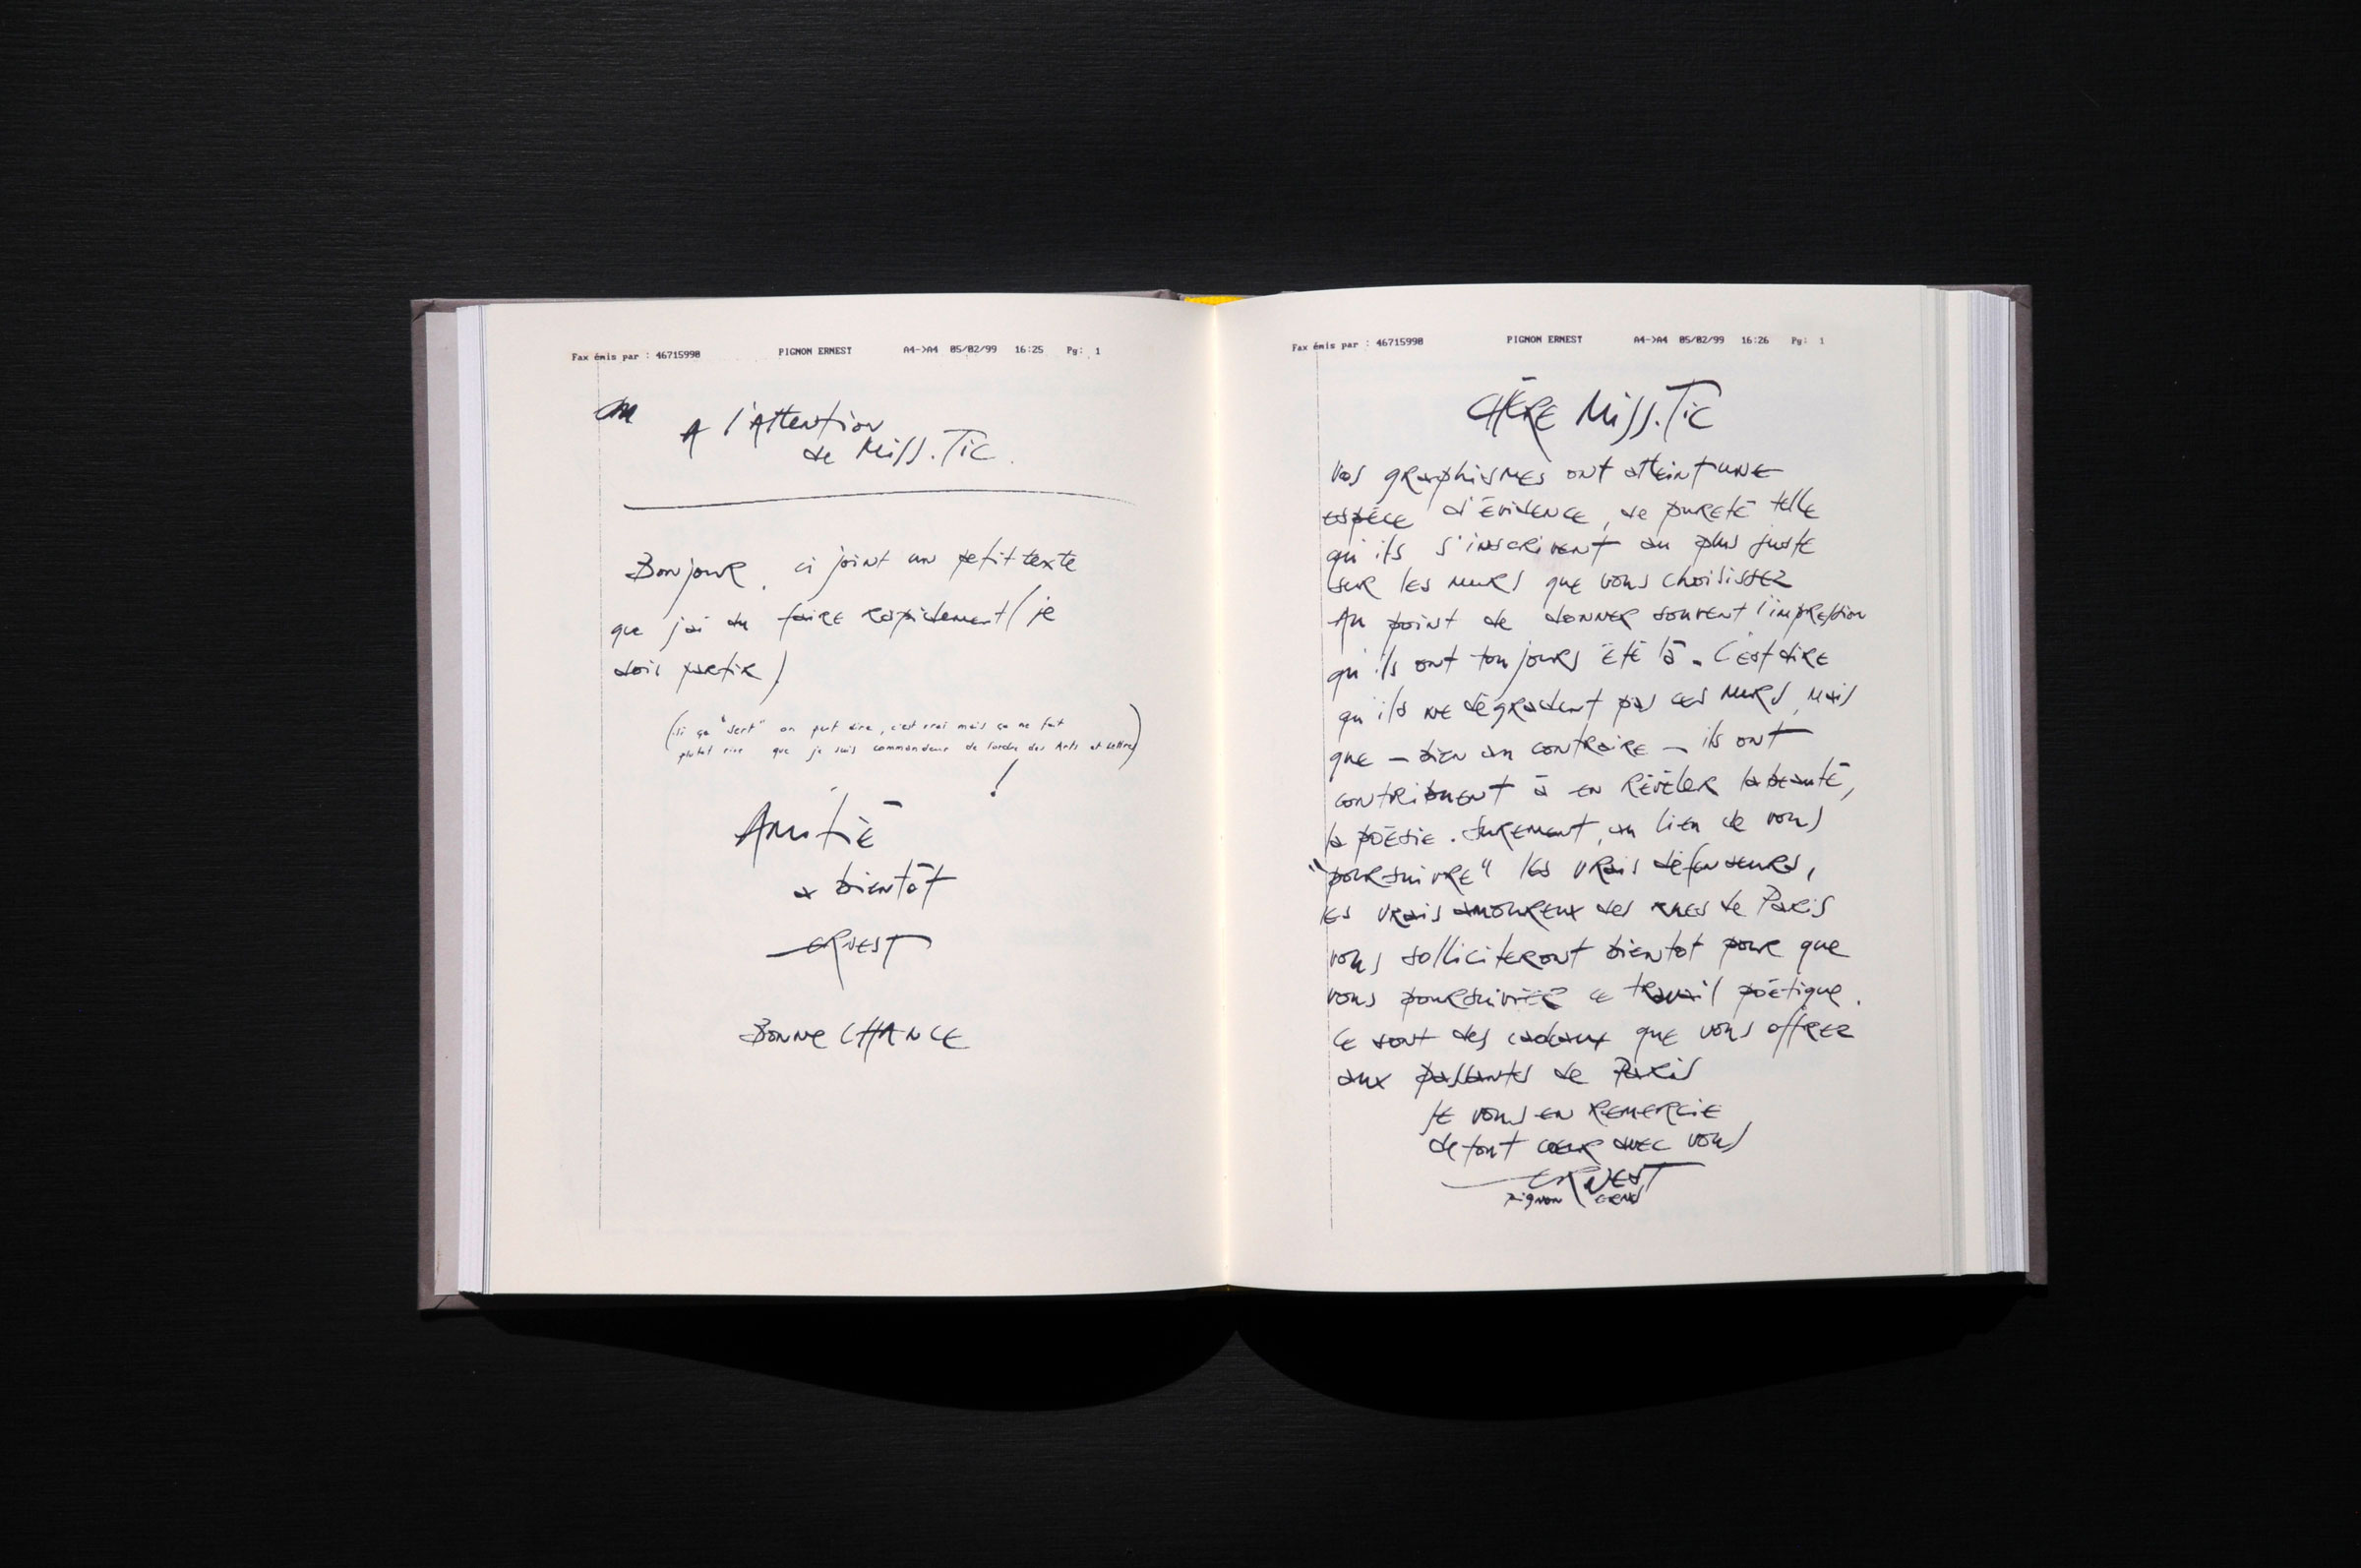 Fax émis par : 46715990 PIGNON ERNEST A4->A4 05/02/99 16:25 Pg: 1
A l'Attention
de Miss.Tic.
Bonjour, ci joint un petit texte
que j'ai du faire rapidement (je
dois partir)
(si ça "sert" on peut dire, c'est vrai mais ça me fait
plutot rire que je suis commandeur de l'ordre des Arts et Lettres)
!
Amitié
a bientôt
ERNEST
BONNE CHANCE
Fax émis par : 46715990 PIGNON ERNEST A4->A4 05/02/99 16:26 Pg: 1
CHÈRE Miss.Tic
Vos graphismes ont atteint une
espèce d'évidence, de pureté telle
qu'ils s'inscrivent au plus juste
sur les murs que vous choisissez
Au point de donner souvent l'impression
qu'ils ont toujours été là. C'est dire
qu'ils ne dégradent pas ces murs, mais
que – bien au contraire – ils ont
contribuent à en révéler la beauté,
la poésie. Surement, au lieu de vous
"poursuivre" les vrais défenseurs,
les vrais amoureux des rues de Paris
vous solliciteront bientot pour que
vous poursuiviez ce travail poétique.
Ce sont des cadeaux que vous offrez
aux passants de Paris
Je vous en remercie
de tout cœur avec vous
ERNEST
Pignon Ernest